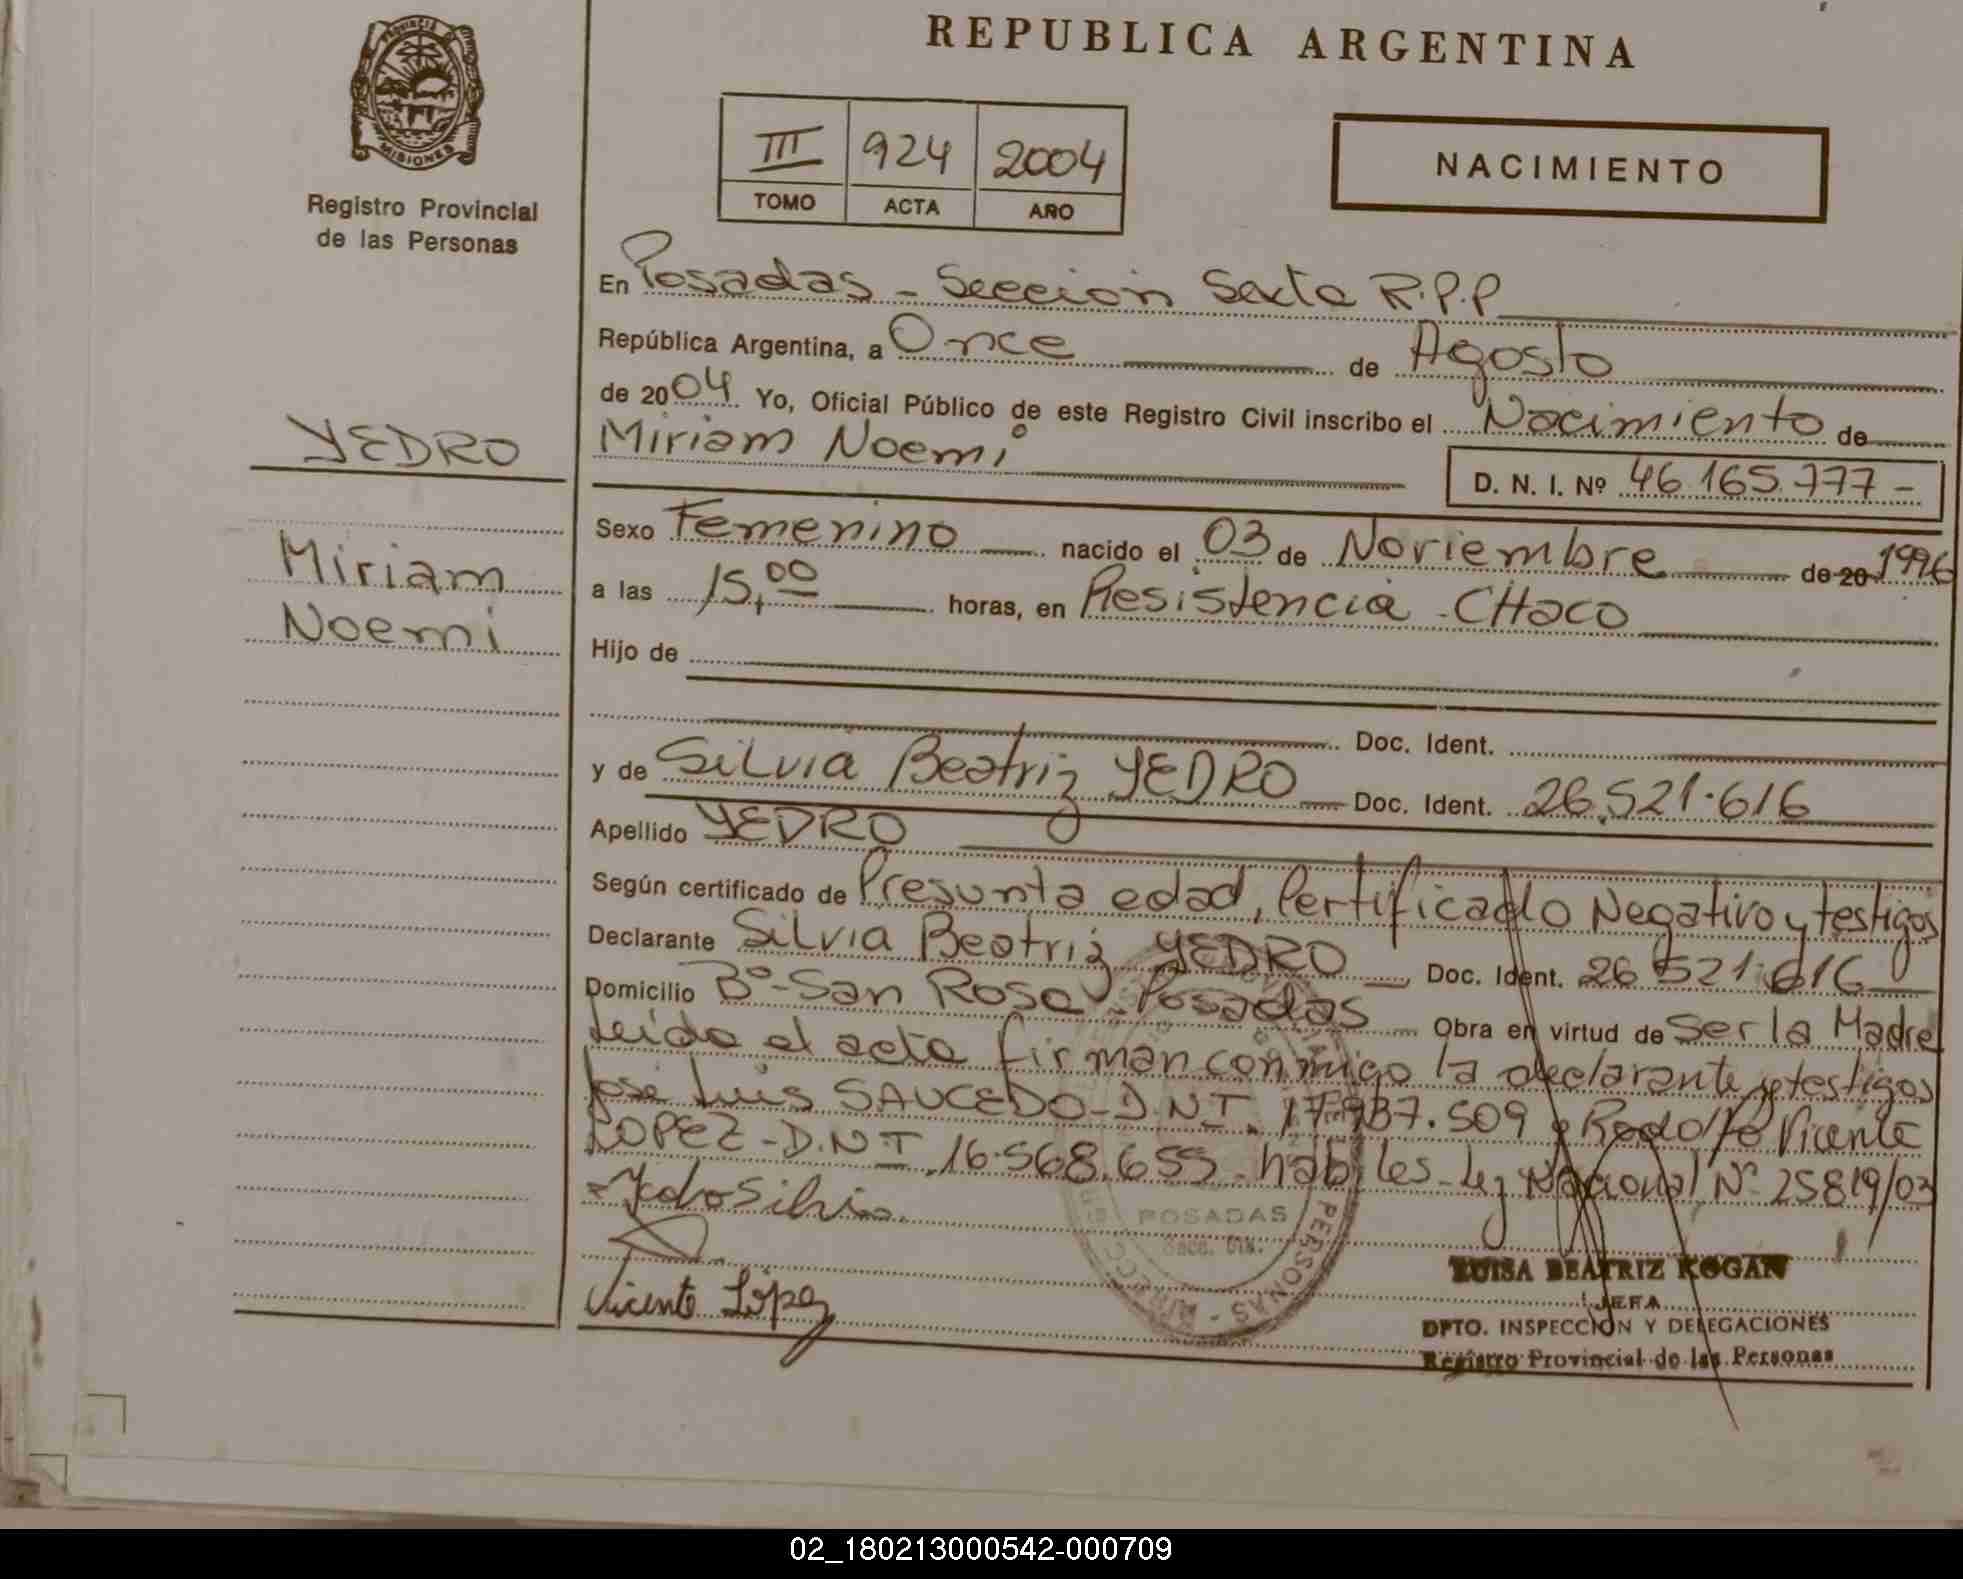 REPUBLICA ARGENTINA
PROVINCIA D
MISIONES
Registro Provincial
de las Personas
III 924 2004
TOMO ACTA AÑO
NACIMIENTO
En Posadas - Seccion Sexta R.P.P
República Argentina, a Once de Agosto
de 2004 Yo, Oficial Público de este Registro Civil inscribo el Nacimiento de
Miriam Noemi
D. N. I. Nº 46.165.777-
YEDRO
Miriam
Noemi
Sexo Femenino nacido el 03 de Noviembre de 20 1996
a las 15,00 horas, en Resistencia - CHaco
Hijo de
Doc. Ident.
y de Silvia Beatriz YEDRO Doc. Ident. 26.521.616
Apellido YEDRO
Según certificado de Presunta edad, Certificado Negativo y testigos
Declarante Silvia Beatriz YEDRO Doc. Ident. 26.521.616
Domicilio Bº-San Rosa-Posadas Obra en virtud de Ser la Madre
Leida el acta firman conmigo la declarante y testigos
José Luis SAUCEDO-D.N.I. 17.937.509 y Rodolfo Vicente
LOPEZ-D.N.I. 16.568.655-habiles-Ley Nacional Nº 25819/03
Yedro Silvia
POSADAS
PERSONAS
Vicente López
LUISA BEATRIZ KOGAN
JEFA
DPTO. INSPECCION Y DELEGACIONES
Registro Provincial de las Personas
02_180213000542-000709